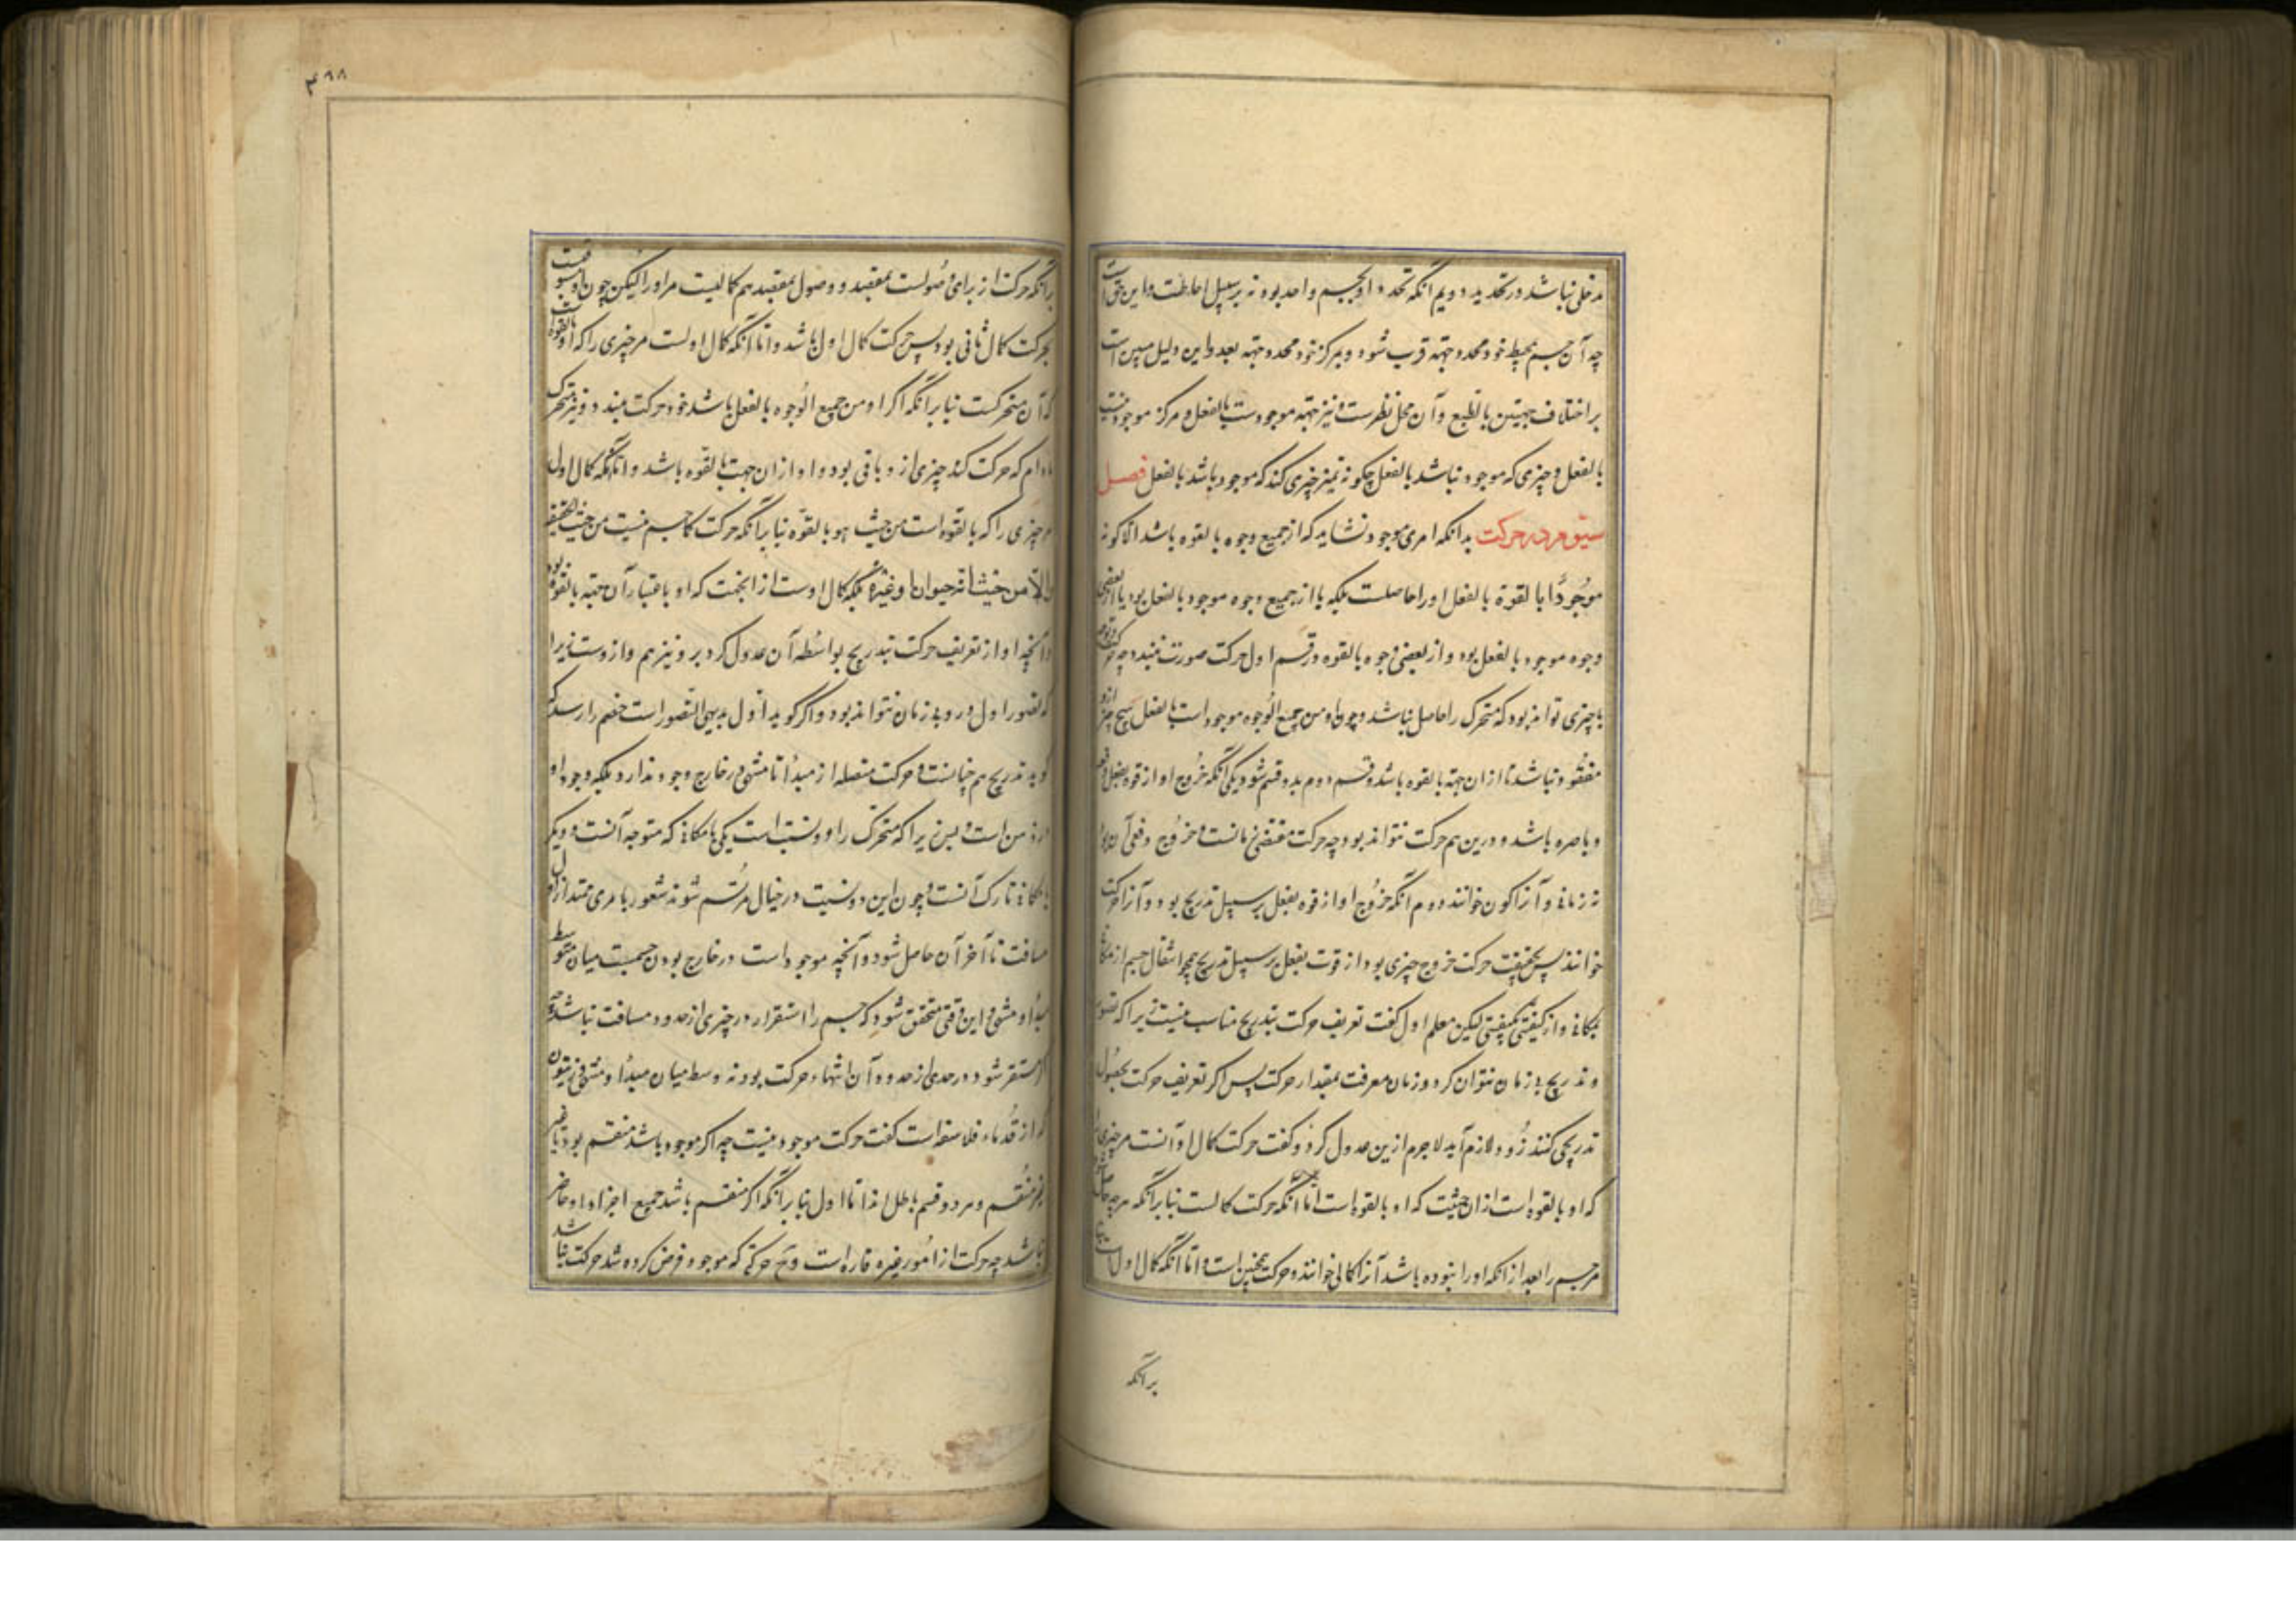 مدخلی نباشد در تحدید دویم آنکه تحدد او بجسم واحد بود نه بر سبیل احاطت و این حق است
چه آن جسم بمحیط خود محدد جهة قرب شود و بمرکز خود محدد جهة بعد و این دلیل مبین است
بر اختلاف جهتین بالطبع و آن محل نظرست و نیز جهة موجودست بالفعل و مرکز موجود نیست
بالفعل و چیزی که موجود نباشد بالفعل چگونه تمیز چیزی کند که موجود باشد بالفعل فصل
سیوم در حرکت بدانکه امری موجود نشاید که از جمیع وجوه بالقوه باشد الا کونه
موجودا بالقوة بالفعل او را حاصلست بلکه یا از جمیع وجوه موجود بالفعل بود یا از بعضی
وجوه موجود بالفعل بود و از بعضی وجوه بالقوه در قسم اول حرکت صورت نبندد چه حرکت
یا چیزی تواند بود که متحرک را حاصل نباشد و چون او من جمیع الوجوه موجود است بالفعل هیچ چیز ازو
مفقود نباشد تا از ان جهة بالقوه باشد و قسم دوم بدو قسم شود یکی آنکه خروج او از قوه بفعل
و باصره باشد و درین هم حرکت نتواند بود چه حرکت مقتضی زمانست و خروج دفعی آنی بود
نه زمانی و آنرا کون خوانند دوم آنکه خروج او از قوه بفعل بر سبیل تدریج بود و آنرا حرکت
خوانند پس بحقیقت حرکت خروج چیزی بود از قوت بفعل بر سبیل تدریج همچو انتقال جسم از مکانی
بمکانی و از کیفیتی بکیفیتی لیکن معلم اول گفت تعریف حرکت بتدریج مناسب نیست زیرا که تصور
و تدریج بی زمان نتوان کرد و زمان معرفت بمقدار حرکت پس اگر تعریف حرکت بحصول
تدریجی کنند دور لازم آید لاجرم ازین عدول کرد و گفت حرکت کمال اول آنست مر چیزی را
که او بالقوه است از ان حیثیت که او بالقوه است اما آنکه حرکت کمالست بنابر آنکه هر چه حاصل
مر جسم را بعد از انکه او را نبوده باشد آنرا کمالی خوانند و حرکت همچنین است و اما آنکه کمال اول است
بر آنکه
۴۹۸
بر آنکه حرکت از برای وصولست بمقصد و وصول بمقصد هم کمالیست مر او را لیکن چون مسبوقست
بحرکت کمال ثانی بود پس حرکت کمال اول باشد و اما آنکه کمال اولست مر چیزی را که او بالقوه است
که آن متحرکست بنابر آنکه اگر او من جمیع الوجوه بالفعل باشد خود حرکت نبندد و نیز متحرک
مادام که حرکت کند چیزی ازو باقی بود و او از ان جهت بالقوه باشد و اما آنکه کمال اول
مر چیزی را که بالقوه است من حیث هو بالقوه بنابر آنکه حرکت کمال جسم نیست من حیث حقیقته
والا من حیث انه حیوان او غیره بلکه کمال اوست از ان جهت که او باعتبار آن جهة بالقوه بود
و آنچه او از تعریف حرکت بتدریج بواسطه آن عدول کرد برو نیز هم وارد است زیرا
که تصور اول و رو بی زمان نتواند بود و اگر گوید اول بدیهی التصور است خصم را رسد که
گوید تدریج هم چنانست و حرکت متصله از مبدأ تا منتهی در خارج وجود ندارد بلکه وجود او
در ذهن است و بس زیرا که متحرک را دو نسبت است یکی بامکانی که متوجه آنست و دیگر
بامکانی تارک آنست و چون این دو نسبت در خیال مرتسم شوند شعور بامری ممتد از اول
مسافت تا آخر آن حاصل شود و آنچه موجود است در خارج بودن جسمست میان متوسط
مبدأ و منتهی و این وقتی متحقق شود که جسم را استقرار در چیزی از حدود مسافت نباشد چه
اگر مستقر شود در حدی از حدود آن انتهاء حرکت بود نه وسط میان مبدأ و منتهی و زینون
که از قدماء فلاسفه است گفت حرکت موجود نیست چه اگر موجود باشد منقسم بود یا غیر
غیر منقسم و هر دو قسم باطل اند اما اول بنابر آنکه اگر منقسم باشد جمیع اجزاء او حاضر
نباشد چه حرکت از امور غیر قاره است و حرکتی که موجود فرض کرده شد حرکت نباشد